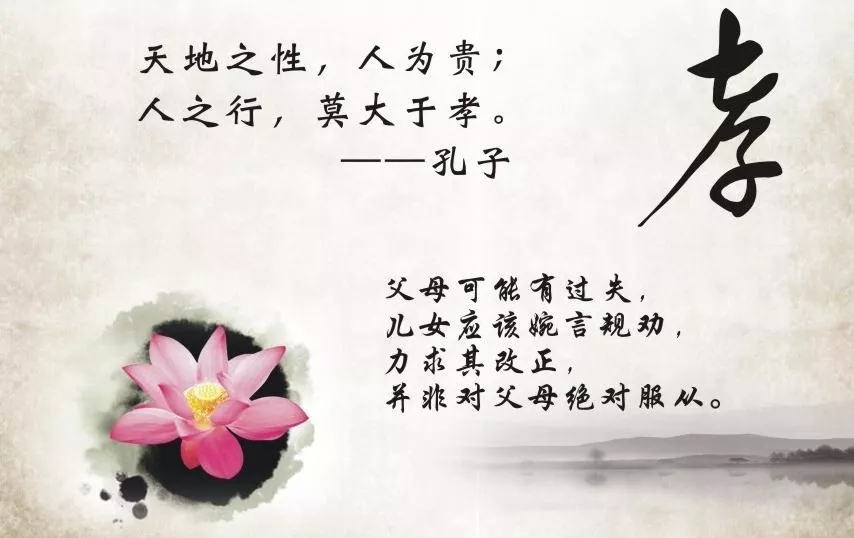 天地之性，人为贵；
人之行，莫大于孝。
——孔子
孝
父母可能有过失，
儿女应该婉言规劝，
力求其改正，
并非对父母绝对服从。